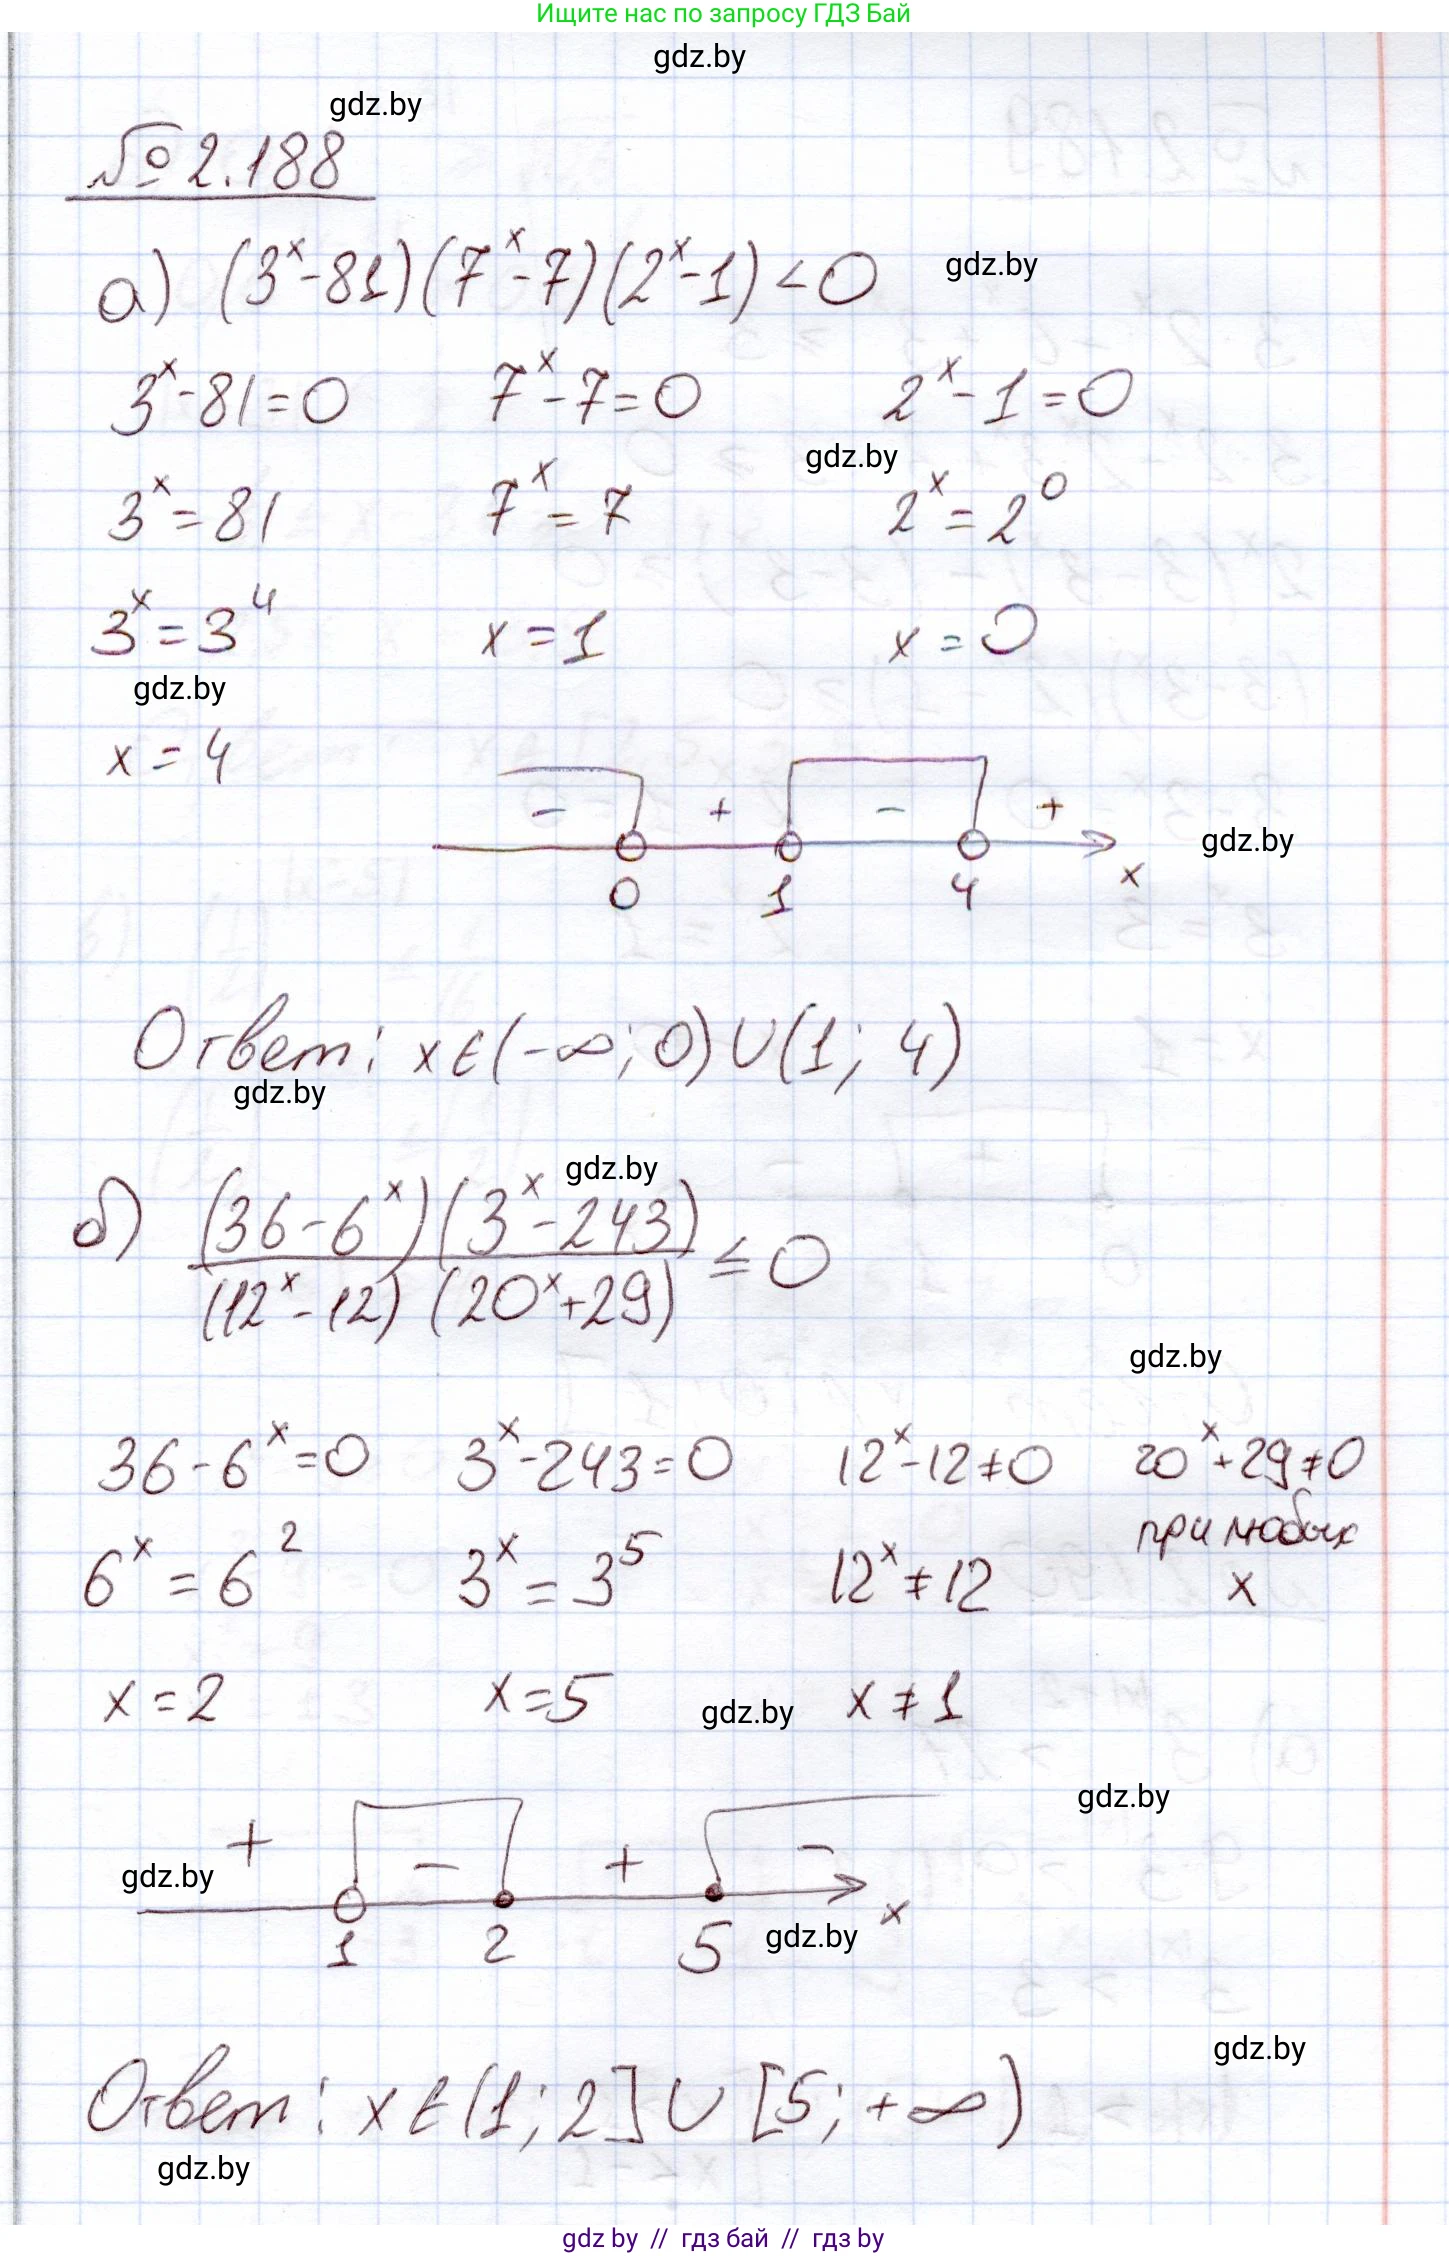 Ищите нас по запросу ГДЗ Бай
gdz.by
gdz.by
№ 2.188
а) (3^x - 81)(7^x - 7)(2^x - 1) < 0
gdz.by
3^x - 81 = 0 7^x - 7 = 0 2^x - 1 = 0
gdz.by
3^x = 81 7^x = 7 2^x = 2^0
3^x = 3^4 x = 1 x = 0
gdz.by
x = 4
- + - +
gdz.by
0 1 4 x
Ответ: x ∈ (-∞; 0) ∪ (1; 4)
gdz.by
gdz.by
б) (36 - 6^x)(3^x - 243) / (12^x - 12)(20^x + 29) ≤ 0
gdz.by
36 - 6^x = 0 3^x - 243 = 0 12^x - 12 ≠ 0 20^x + 29 ≠ 0
при любых
6^x = 6^2 3^x = 3^5 12^x ≠ 12 x
x = 2 x = 5 x ≠ 1
gdz.by
gdz.by
+ - + -
gdz.by
1 2 5 x
gdz.by
gdz.by
Ответ: x ∈ (1; 2] ∪ [5; +∞)
gdz.by
gdz by // гдз бай // гдз by